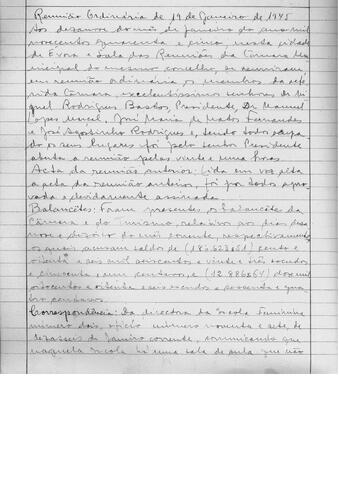 Reunião Ordinária de 19 de Janeiro de 1945
Aos dezanove do mês de Janeiro do ano mil
novecentos e quarenta e cinco, nesta cidade
de Evora e Sala das Reuniões da Câmara Mu
nicipal do mesmo concelho, se reuniram
em reunião ordinária os membros da refe
rida Câmara excelentissimos senhores Mi
guel Rodrigues Bastos Presidente, Dr. Manuel
Lopes José Maria de Matos Fernandes
e José Agostinho Rodrigues e, sendo todos ocupa
do os seus lugares foi pelo senhor Presidente
aberta a reunião pelas vinte e uma horas.
Acta da reunião anterior: Lida em voz alta
a acta da reunião anterior, foi por todos apro
vada e devidamente assinada.
Balancêtes: Foram presentes os balancêtes da
Câmara e do Turismo, relativos aos dias deza
nove e dezoito do mês corrente, respectivamente
os quais acusam saldos de (186.623$51) cento e
oitenta e seis mil seiscentos e vinte e três escudos
e cincoenta e um centavos, e (12.886$64) doze mil
oitocentos e oitenta e seis escudos e sessenta e qua
tro centavos.
Correspondência: Da directora da escola feminina
número dois, ofício número noventa e sete, de
dezasseis de Janeiro corrente, comunicando que
naquela escola há uma sala de aula que não